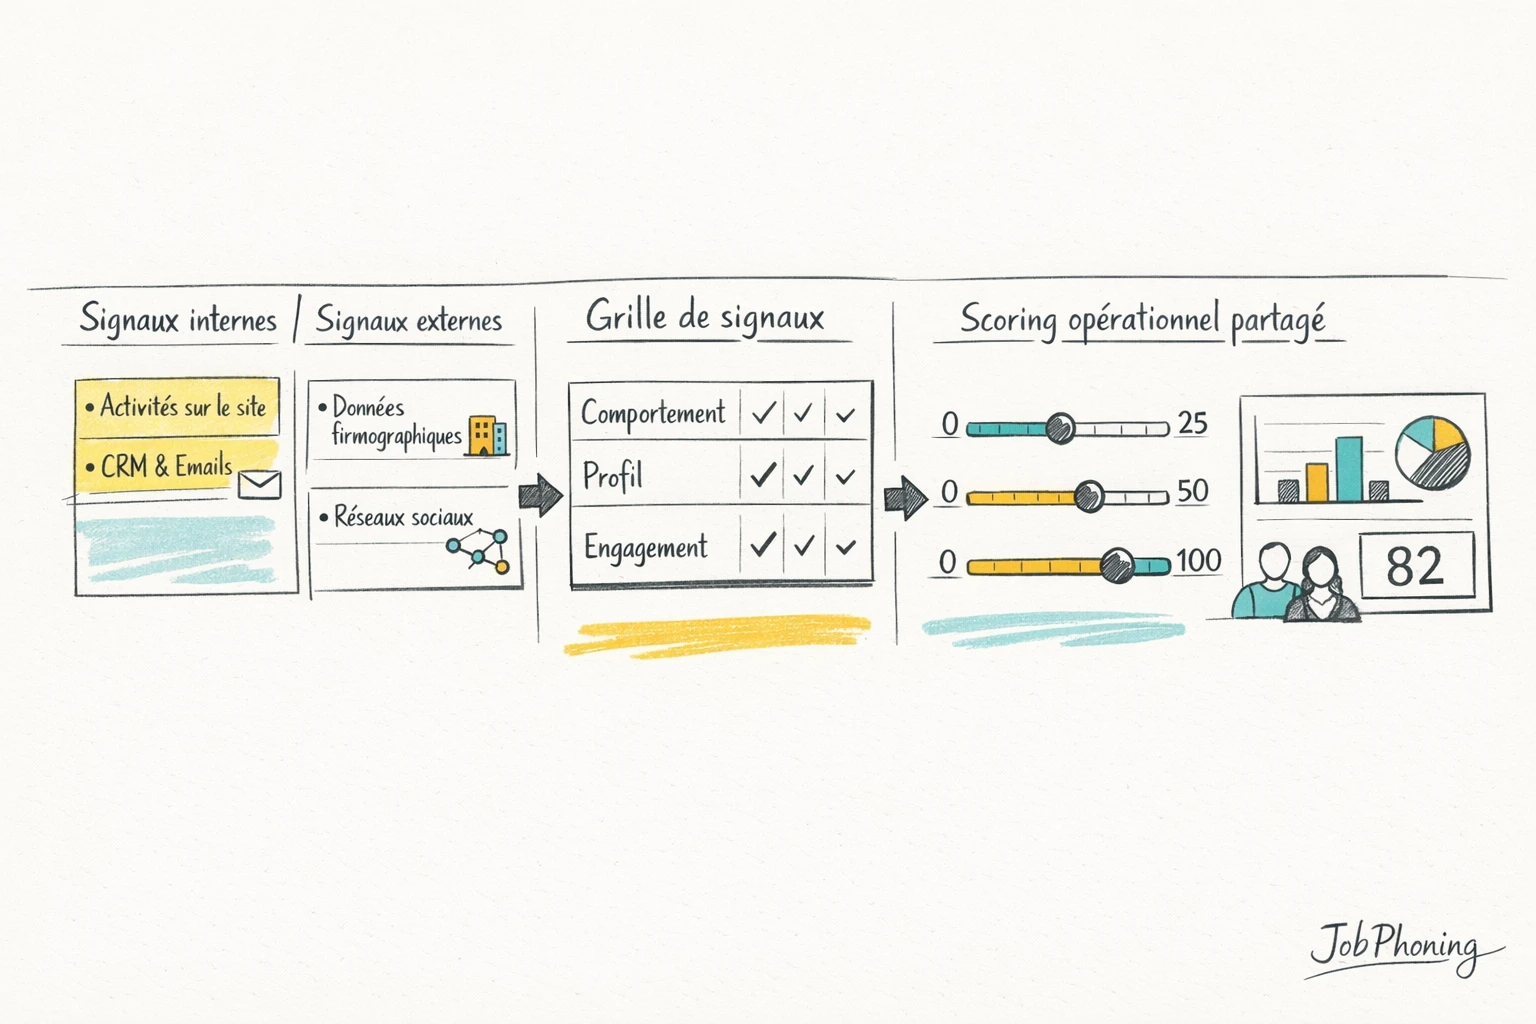 Signaux internes / Signaux externes
• Activités sur le site
• CRM & Emails
• Données
firmographiques
• Réseaux sociaux
Grille de signaux
Comportement
Profil
Engagement
Scoring opérationnel partagé
0 25
0 50
0 100
82
JobPhoning